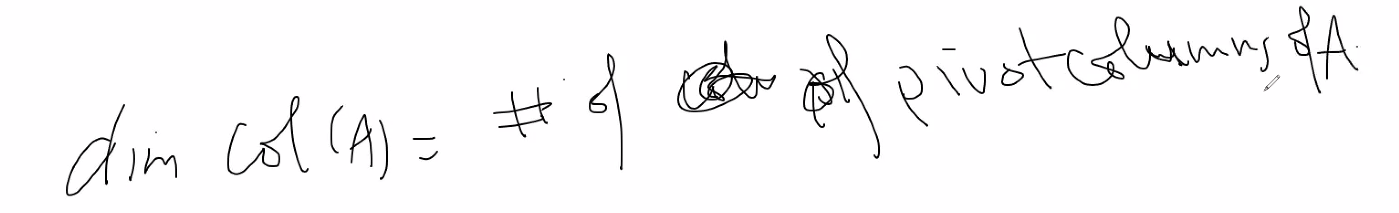 dim Col(A) = # of of pivot columns of A.